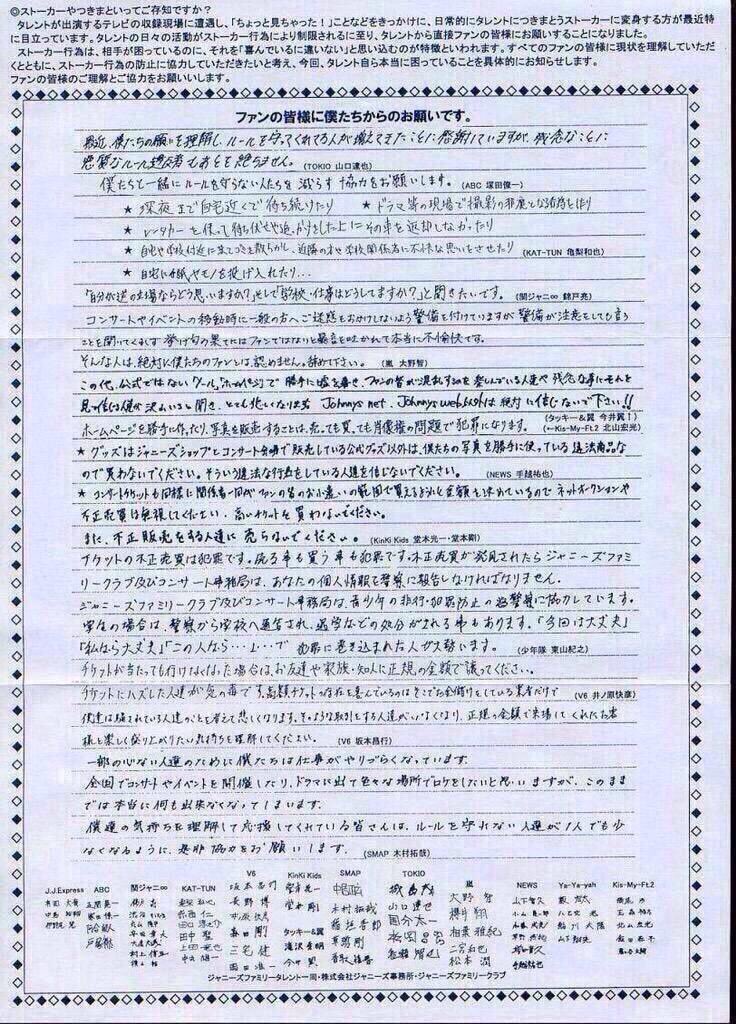 ◎ストーカーやつきまといってご存知ですか？
タレントが出演するテレビの収録現場に遭遇し、「ちょっと見ちゃった！」ことなどをきっかけに、日常的にタレントにつきまとうストーカーに変身する方が最近特
に目立っています。タレントの日々の活動がストーカー行為により制限されるに至り、タレントから直接ファンの皆様にお願いすることになりました。
ストーカー行為は、相手が困っているのに、それを「喜んでいるに違いない」と思い込むのが特徴といわれます。すべてのファンの皆様に現状を理解していただ
くとともに、ストーカー行為の防止に協力していただきたいと考え、今回、タレント自ら本当に困っていることを具体的にお知らせします。
ファンの皆様のご理解とご協力をお願いいします。
ファンの皆様に僕たちからのお願いです。
最近、僕たちの願いを理解し、ルールを守ってくれてる人が増えてきたことに感謝していますが、残念なことに
悪質なルール違反者もあとを絶ちません。(TOKIO 山口達也)
僕たちと一緒にルールを守らない人たちを減らす協力をお願いします。(ABC 塚田僚一)
★ 深夜まで自宅近くで待ち続けたり ★ ドラマ等の現場で撮影の邪魔となる行為を作り
★ レンタカーを使って待ち伏せや追っかけをした上にその車を返却しなかったり
★ 自宅や学校付近に来てつきを散らかし、近隣の方や学校関係者に不快な思いをさせたり (KAT-TUN 亀梨和也)
★ 自宅に手紙やモノを投げ入れたり…
「自分が逆の立場ならどう思いますか？」そして「学校・仕事はどうしてますか？」と聞きたいです。(関ジャニ∞ 錦戸亮)
コンサートやイベントの移動時に一般の方へご迷惑をおかけしないよう警備を付けていますが警備が注意をしても言う
ことを聞いてくれず挙げ句の果てにはファンではないなりと暴言を吐かれて本当に不愉快です。
そんな人は、絶対に僕たちのファンとは、認めません。辞めて下さい。(嵐 大野智)
この他、公式ではない 勝手に嘘を書き、ファンの皆が混乱するのを楽しんでいる人達や残念な事にそれを
見て信じる人達が沢山いると聞き、とても悲しくなります Johnnys net、Johnnys web以外は絶対に信じないで下さい!!
(タッキー&翼 今井翼↑)
ホームページを勝手に作ったり、写真を販売することは、売っても買っても肖像権の問題で犯罪になります。(←Kis-My-Ft.2 北山宏光)
★ グッズはジャニーズショップとコンサート会場で販売している公式グッズ以外は、僕たちの写真を勝手に使っている違法商品な
ので買わないでください。そういう違法な行為をしている人達を信じないでください。(NEWS 手越祐也)
★ コンサートチケットも同様に関係者一同がファンの皆のお小遣いの範囲で買えるようにと金額を決めているのでネットオークションや
不正売買は無視してください。高いチケットを買わないでください。
また、不正販売をする人達に売らないでください。(KinKi Kids 堂本光一・堂本剛)
チケットの不正売買は犯罪です。売る事も買う事も犯罪です。不正売買が発見されたらジャニーズファミ
リークラブ及びコンサート事務局は、あなたの個人情報を警察に報告しなければなりません。
ジャニーズファミリークラブ及びコンサート事務局は、青少年の非行・犯罪防止の為警察に協力しています。
学生の場合は、警察から学校へ通告され、退学などの処分がされる事もあります。「今回は大丈夫」
「私なら大丈夫」「この人なら…」…で 犯罪に巻き込まれた人が大勢います。(少年隊 東山紀之)
チケットが当たっても行けなくなった場合は、お友達や家族・知人に正規の金額で譲ってください。
チケットにハズレた人達が気の毒です。高額チケットの存在を喜んでいるのはそこでお金儲けをしている業者だけで (V6 井ノ原快彦)
僕達は騙されている人達のことを考えて悲しくなります。そのような取引をする人達がいなくなり、正規の金額で来場してくれたお客
様と楽しく盛り上がりたい気持ちを理解してください。(V6 坂本昌行)
一部の心ない人達のために僕たちは仕事がやりづらくなっています。
全国でコンサートやイベントを開催したり、ドラマに出て色々な場所でロケをしたいと思いますが、このまま
では本当に何も出来なくなってしまいます。
僕達の気持ちを理解して応援してくれている皆さんは、ルールを守れない人達が1人でも少
なくなるように、是非協力をお願いします。(SMAP 木村拓哉)
J.J.Express ABC 関ジャニ∞ KAT-TUN V6 KinKi Kids SMAP TOKIO 嵐 NEWS Ya-Ya-yah Kis-My-Ft.2
坂本昌行 長野博 森田剛 三宅健 岡田准一
堂本光一 堂本剛
タッキー&翼 滝沢秀明 今井翼
中居正広 木村拓哉 稲垣吾郎 草彅剛 香取慎吾
城島茂 山口達也 国分太一 松岡昌宏
大野智 櫻井翔 相葉雅紀 二宮和也 松本潤
ジャニーズファミリータレント一同・株式会社ジャニーズ事務所・ジャニーズファミリークラブ